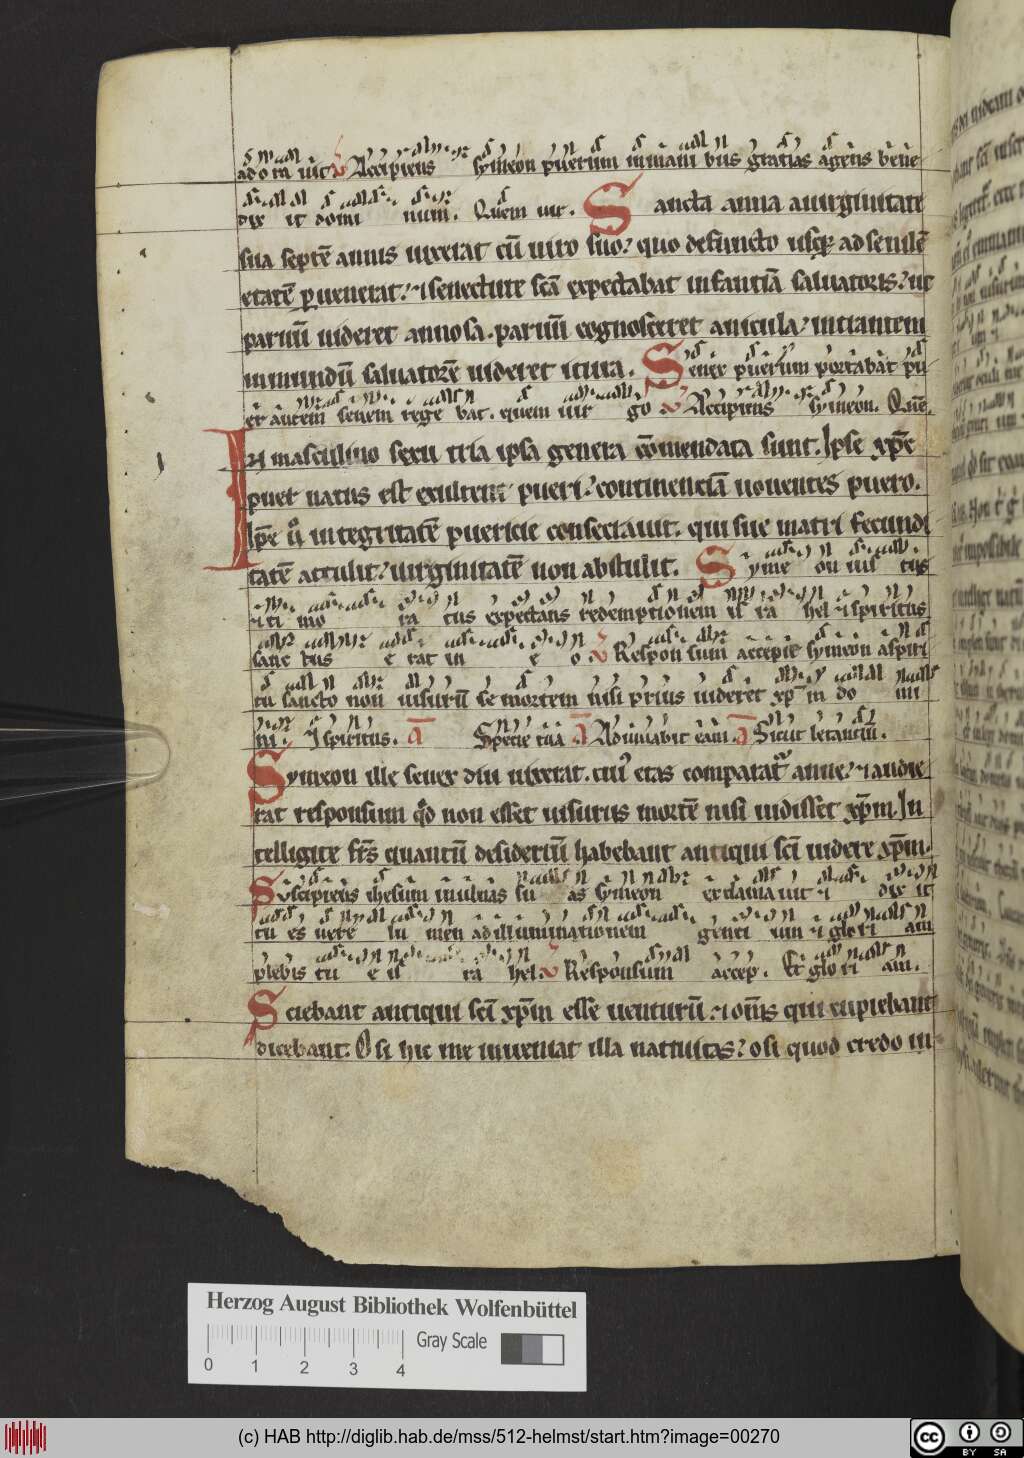 adora uit Accipiens symeon puerum in manibus gratias agens bene
dix it domi num. Quem uir. Sancta anna a uirginitate
sua septē annis uixerat cū uiro suo. quo defuncto usq; ad senilē
etatē puenerat. ⁊ senecture scā expectabat infantiā saluatoris. ut
paruū uideret annosa. paruū cognosceret anicula. intrantem
in mundū saluatorē uideret itura. Senex puerum portabat pu
er autem senem rege bat. quem uir go Accipiens symeon. Quē.
In masculino sexu tria ipsa genera cōmendata sunt. Ipse xp̄e
puer natus est exultent pueri. continenciā uouentes puero.
Ip̄e integritatē puericie consecrauit. qui sue matri fecundi
tatē attulit. uirginitatē non abstulit. Syme on ius tus
⁊ ti mo ra tus expectans redemptionem is ra hel ⁊ spiritus
sanc tus e rat in e o Respon sum accepit symeon a spiri
tu sancto non uisurū se mortem nisi prius uideret xp m do mi
ni. ⁊ spiritus. a Specie tua a Adiuuabit eam. a Sicut letantiū.
Symeon ille senex diu uixerat. cui etas comparat anne. ⁊ audie
rat responsum qd non esset uisurus mortē nisi uidisset xp̄m. In
telligite frs quantū desideriū habebant antiqui sci uidere xp̄m.
Suscipiens ihesum in ulnas su as symeon exclama uit ⁊ dix it
tu es uere lu men ad illuminationem genti um ⁊ glo ri am
plebis tu e is ra hel Responsum accep. Et glo ri am.
Sciebant antiqui sci xp̄m esse uenturū. ⁊ oms qui cupiebant
dicebant. O si hic me inueniat illa natiuitas. o si quod credo in
Herzog August Bibliothek Wolfenbüttel
Gray Scale
0 1 2 3 4
(c) HAB http://diglib.hab.de/mss/512-helmst/start.htm?image=00270
cc BY SA